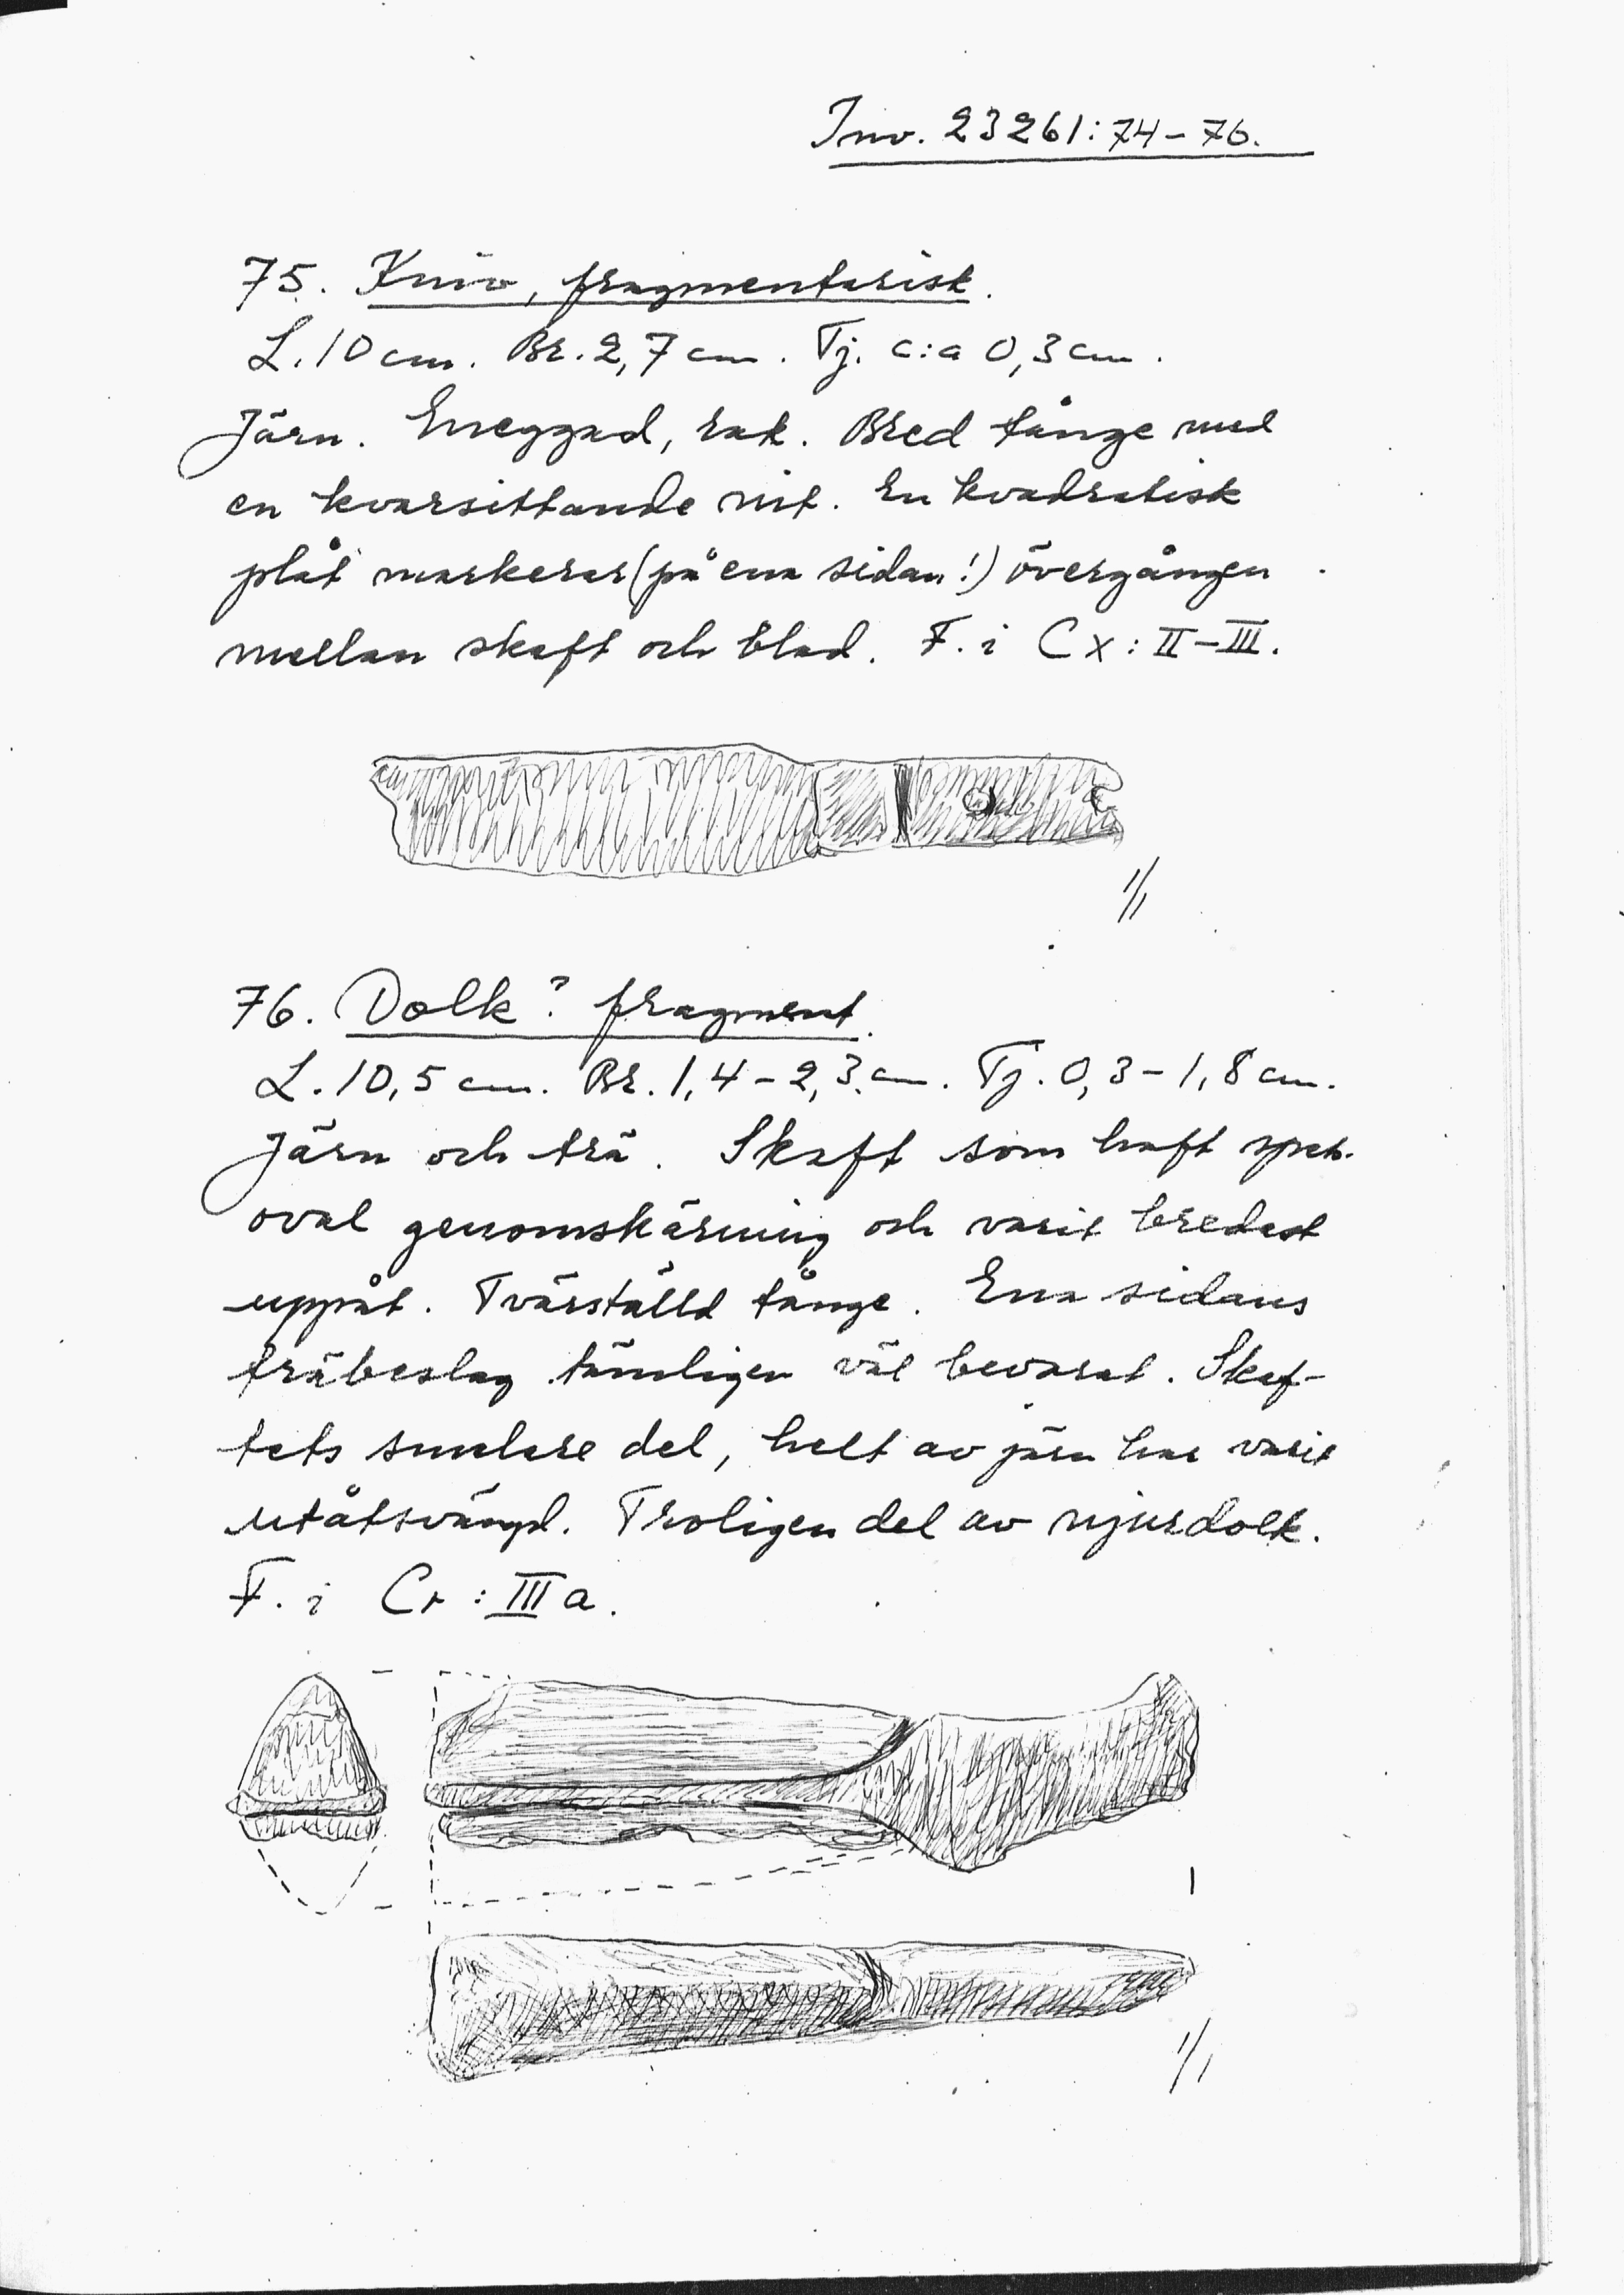 Inv. 23261:74-76.
75. Kniv, fragmentarisk.
L. 10 cm. Br. 2,7 cm. Tj. c:a 0,3 cm.
Järn. Eneggad, rak. Bred tånge med
en kvarsittande nit. En kvadratisk
plåt markerar (på ena sidan!) övergången
mellan skaft och blad. F. i Cx: II-III.
1/1
76. Dolk? fragment.
L. 10,5 cm. Br. 1,4-2,3 cm. Tj. 0,3-1,8 cm.
Järn och trä. Skaft som haft spets-
oval genomskärning och varit bredast
uppåt. Tvärställd tånge. Ena sidans
träbeslag tämligen väl bevarat. Skaf-
tets smalare del, helt av järn har varit
utåtsvängd. Troligen del av njurdolk.
F. i Cr: III a.
1/1